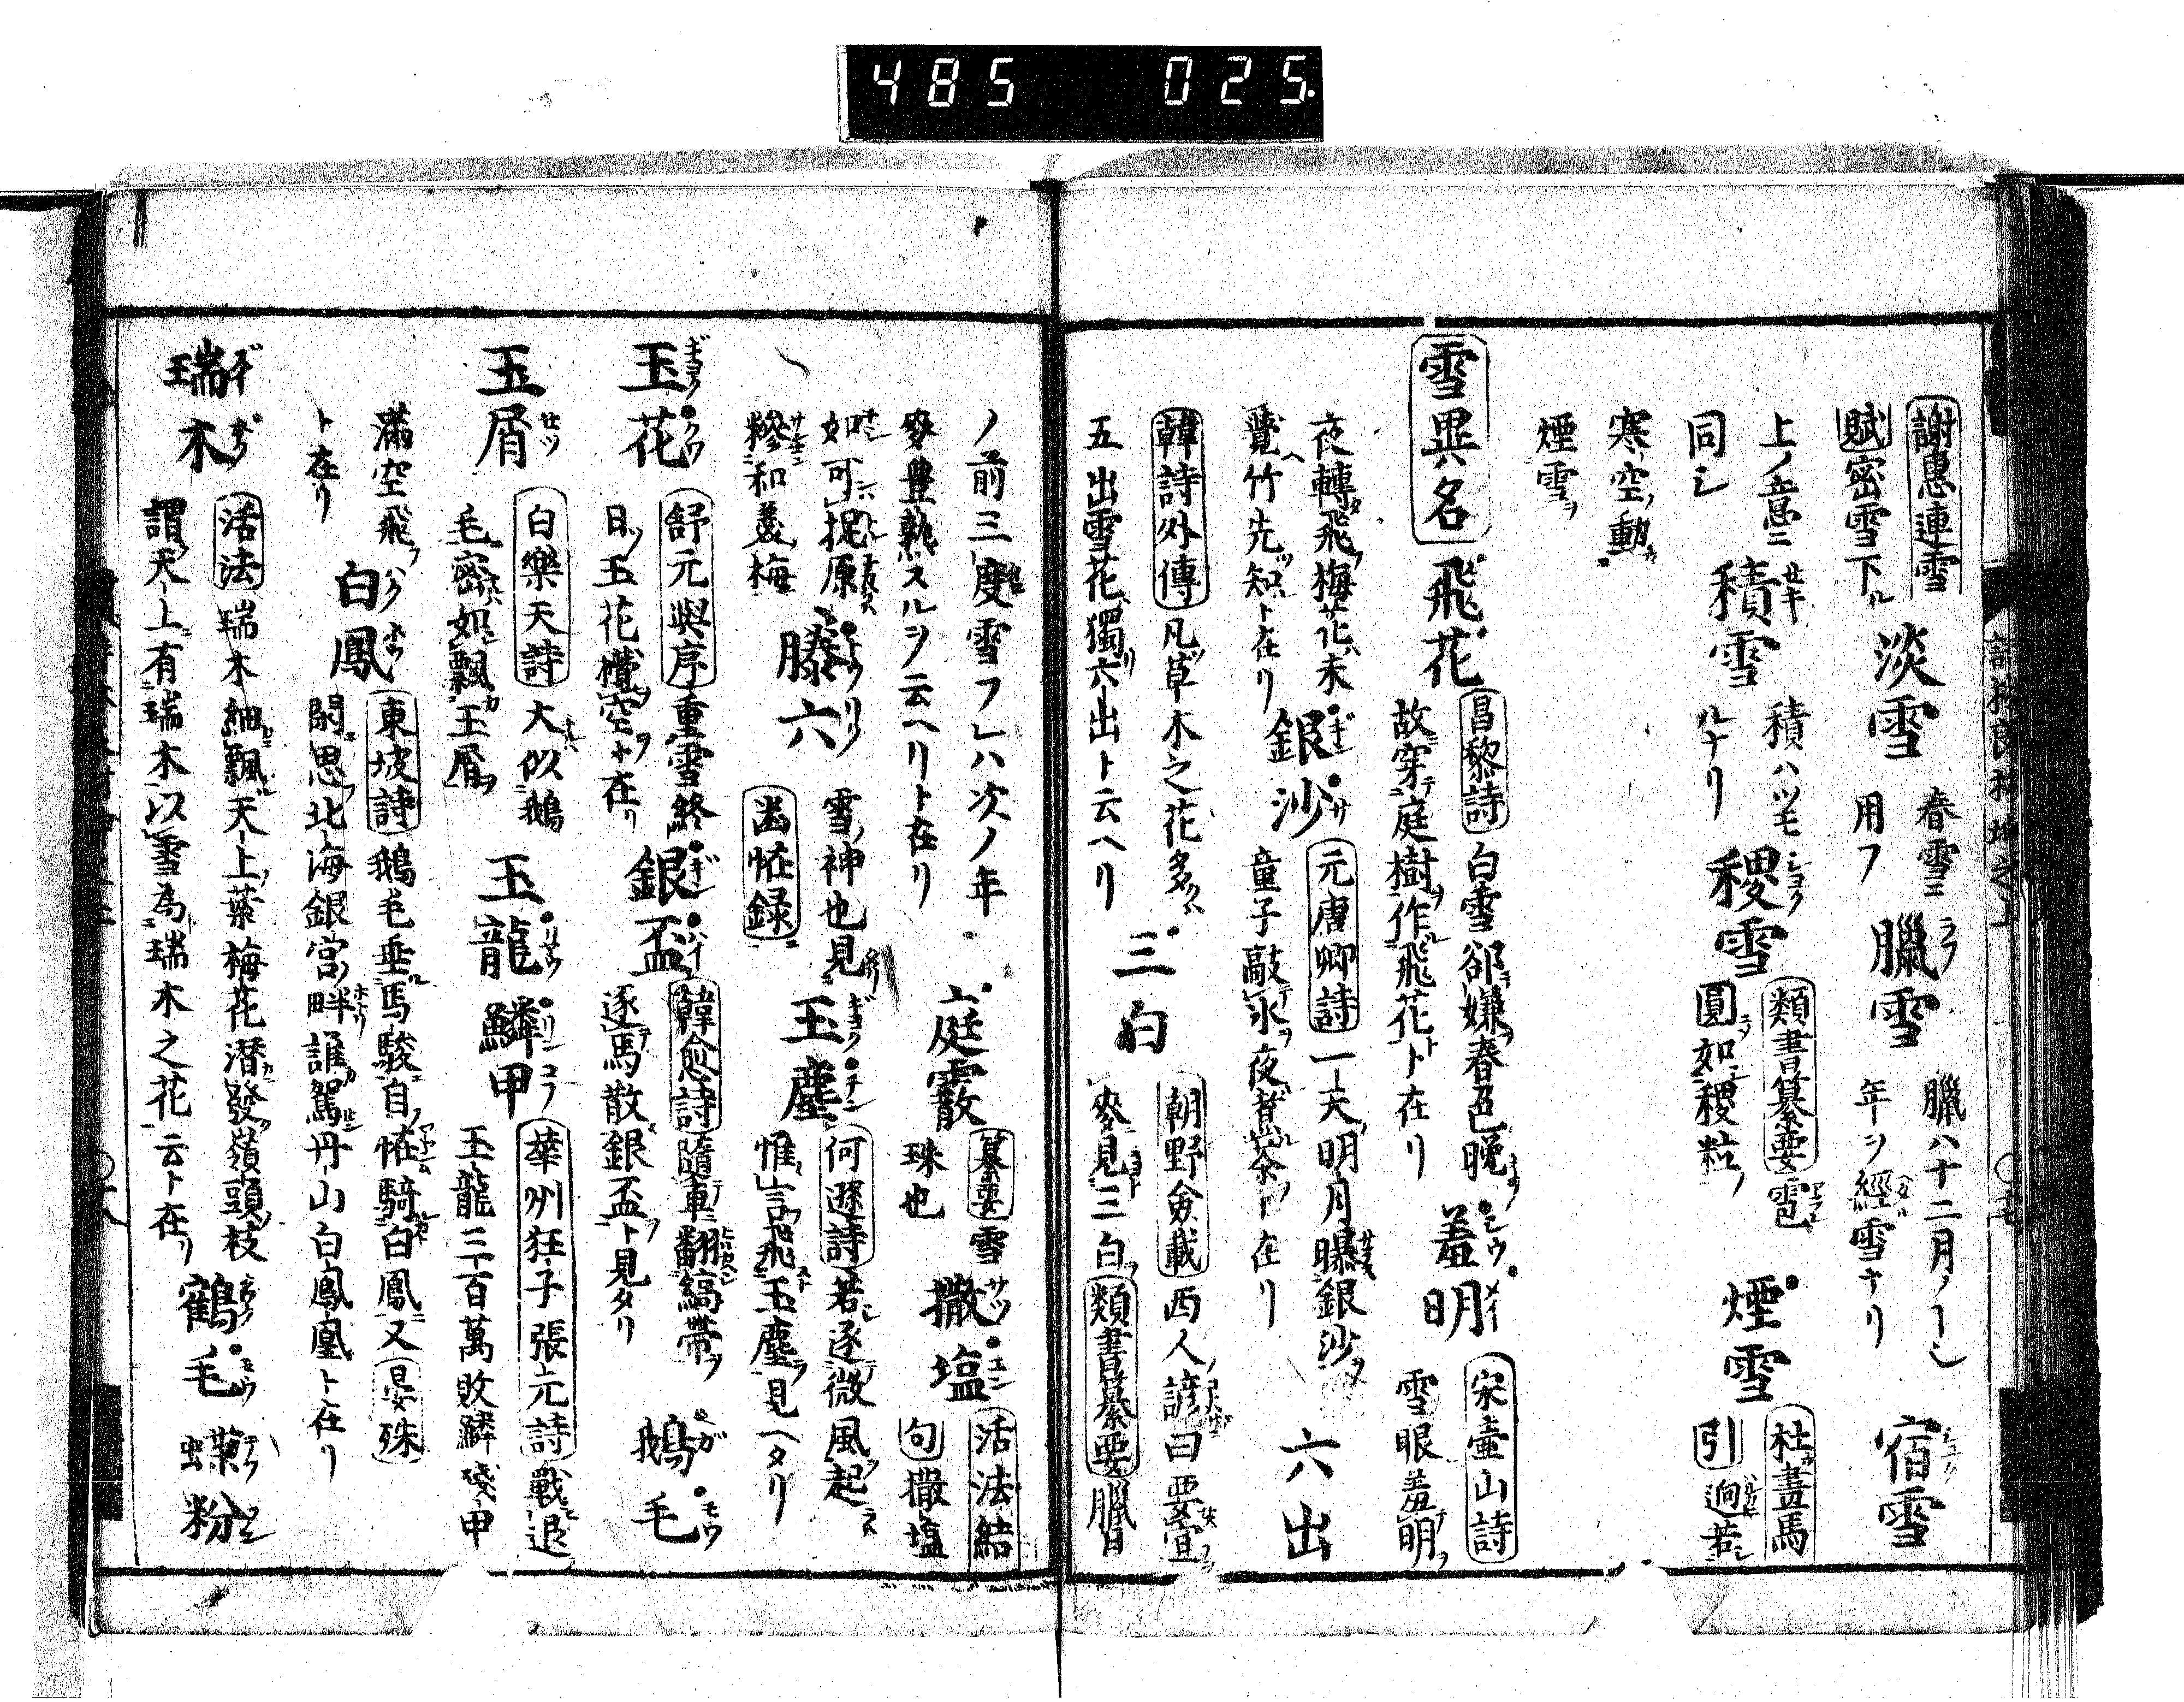 485 025.
謝惠連雪
賦密雪下ル 淡雪 春雪ニ
用フ 臘雪 臘ハ十二月ノ
年ヲ經雪ナリ 宿雪
上ノ意ニ
同シ 積雪 積ハツモ
ルナリ 稷雪 類書纂要雹
圓如稷粒 煙雪 杜畫馬
引 逈若
寒空動
煙雪ヲ
雪異名 飛花 昌黎詩 白雪郤嫌春色晚
故穿庭樹作飛花ト在リ 羞明 宋壷山詩
雪眼羞明
夜轉飛梅花未
覺竹先知ト在リ 銀沙 元唐卿詩 一天明月曝銀沙
童子敲氷夜煮茶ト在リ 六出
韓詩外傳 凡草木之花多
五出雪花獨六出ト云ヘリ 三白 朝野僉載 西人諺曰要宜
麥見三白 類書纂要 臘日
ノ前三度雪フレハ次ノ年
麥豊熟スルヲ云ヘリト在リ 六霰 纂要 雪
珠也 撒塩 活法結
句 撒塩
如可捉原
糝和羹梅 滕六 雪神也見
幽怪録 玉塵 何遜詩 若逐微風起
惟言飛玉塵見ヘタリ
玉花 舒元輿序 重雪終
日玉花攪空ト在リ 銀盃 韓愈詩 隨車翻縞帶
逐馬散銀盃ト見タリ 鵝毛
玉屑 白樂天詩 大似鵝
毛密如飄玉屑 玉龍鱗甲 華州狂子張元詩 戰退
玉龍三百萬敗鱗殘甲
滿空飛
ト在リ 白鳳 東坡詩 鵝毛垂馬駿自怪騎白鳳又 晏殊
閑思北海銀宮畔誰駕丹山白鳳凰ト在リ
瑞木 活法 瑞木細飄天上葉梅花潜發嶺頭枝
謂天上有瑞木以雪為瑞木之花云ト在リ 鶴毛 蝶粉